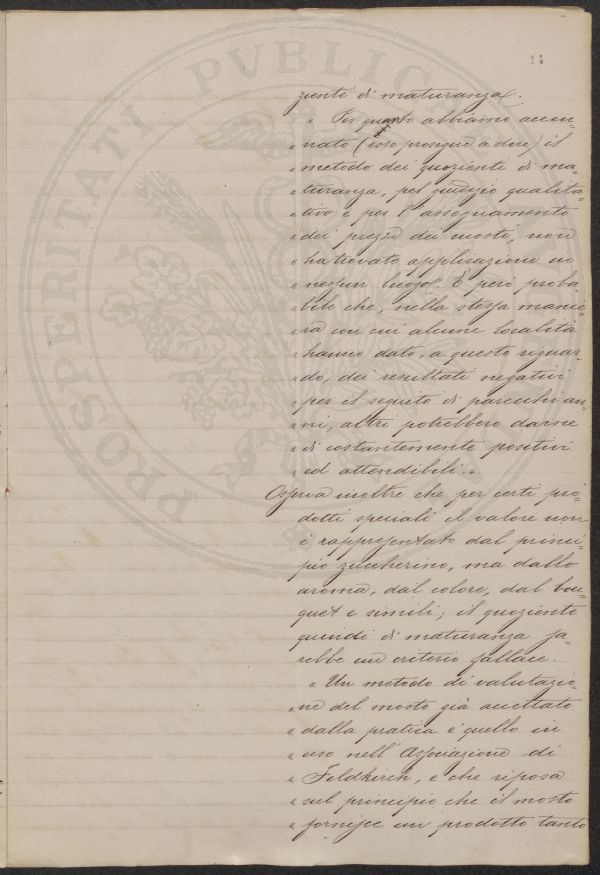 14
zienti di maturanza.
" Per quanto abbiamo accen-
" nato (esso prosegue a dire) il
" metodo dei quozienti di ma-
" turanza, pel giudizio qualita-
" tivo e per l'assegnamento
" dei prezzi dei mosti, non
" ha trovato applicazione in
" nessun luogo. È però proba-
" bile che, nella stessa manie-
" ra con cui alcune località
" hanno dato, a questo riguar-
" do, dei resultati negativi
" per il seguito di parecchi an-
" ni, altri potrebbero darne
" di costantemente positivi
" ed attendibili. "
Osserva inoltre che per certi pro-
dotti speciali il valore non
è rappresentato dal princi-
pio zuccherino, ma dallo
aroma, dal colore, dal bou-
quet e simili; il quoziente
quindi di maturanza sa-
rebbe un criterio fallace.
" Un metodo di valutazio-
" ne del mosto già accettato
" dalla pratica è quello in
" uso nell'Associazione di
" Feldkirch, e che riposa
" sul principio che il mosto
" fornisce un prodotto tanto
PROSPERITATI PVBLICAE